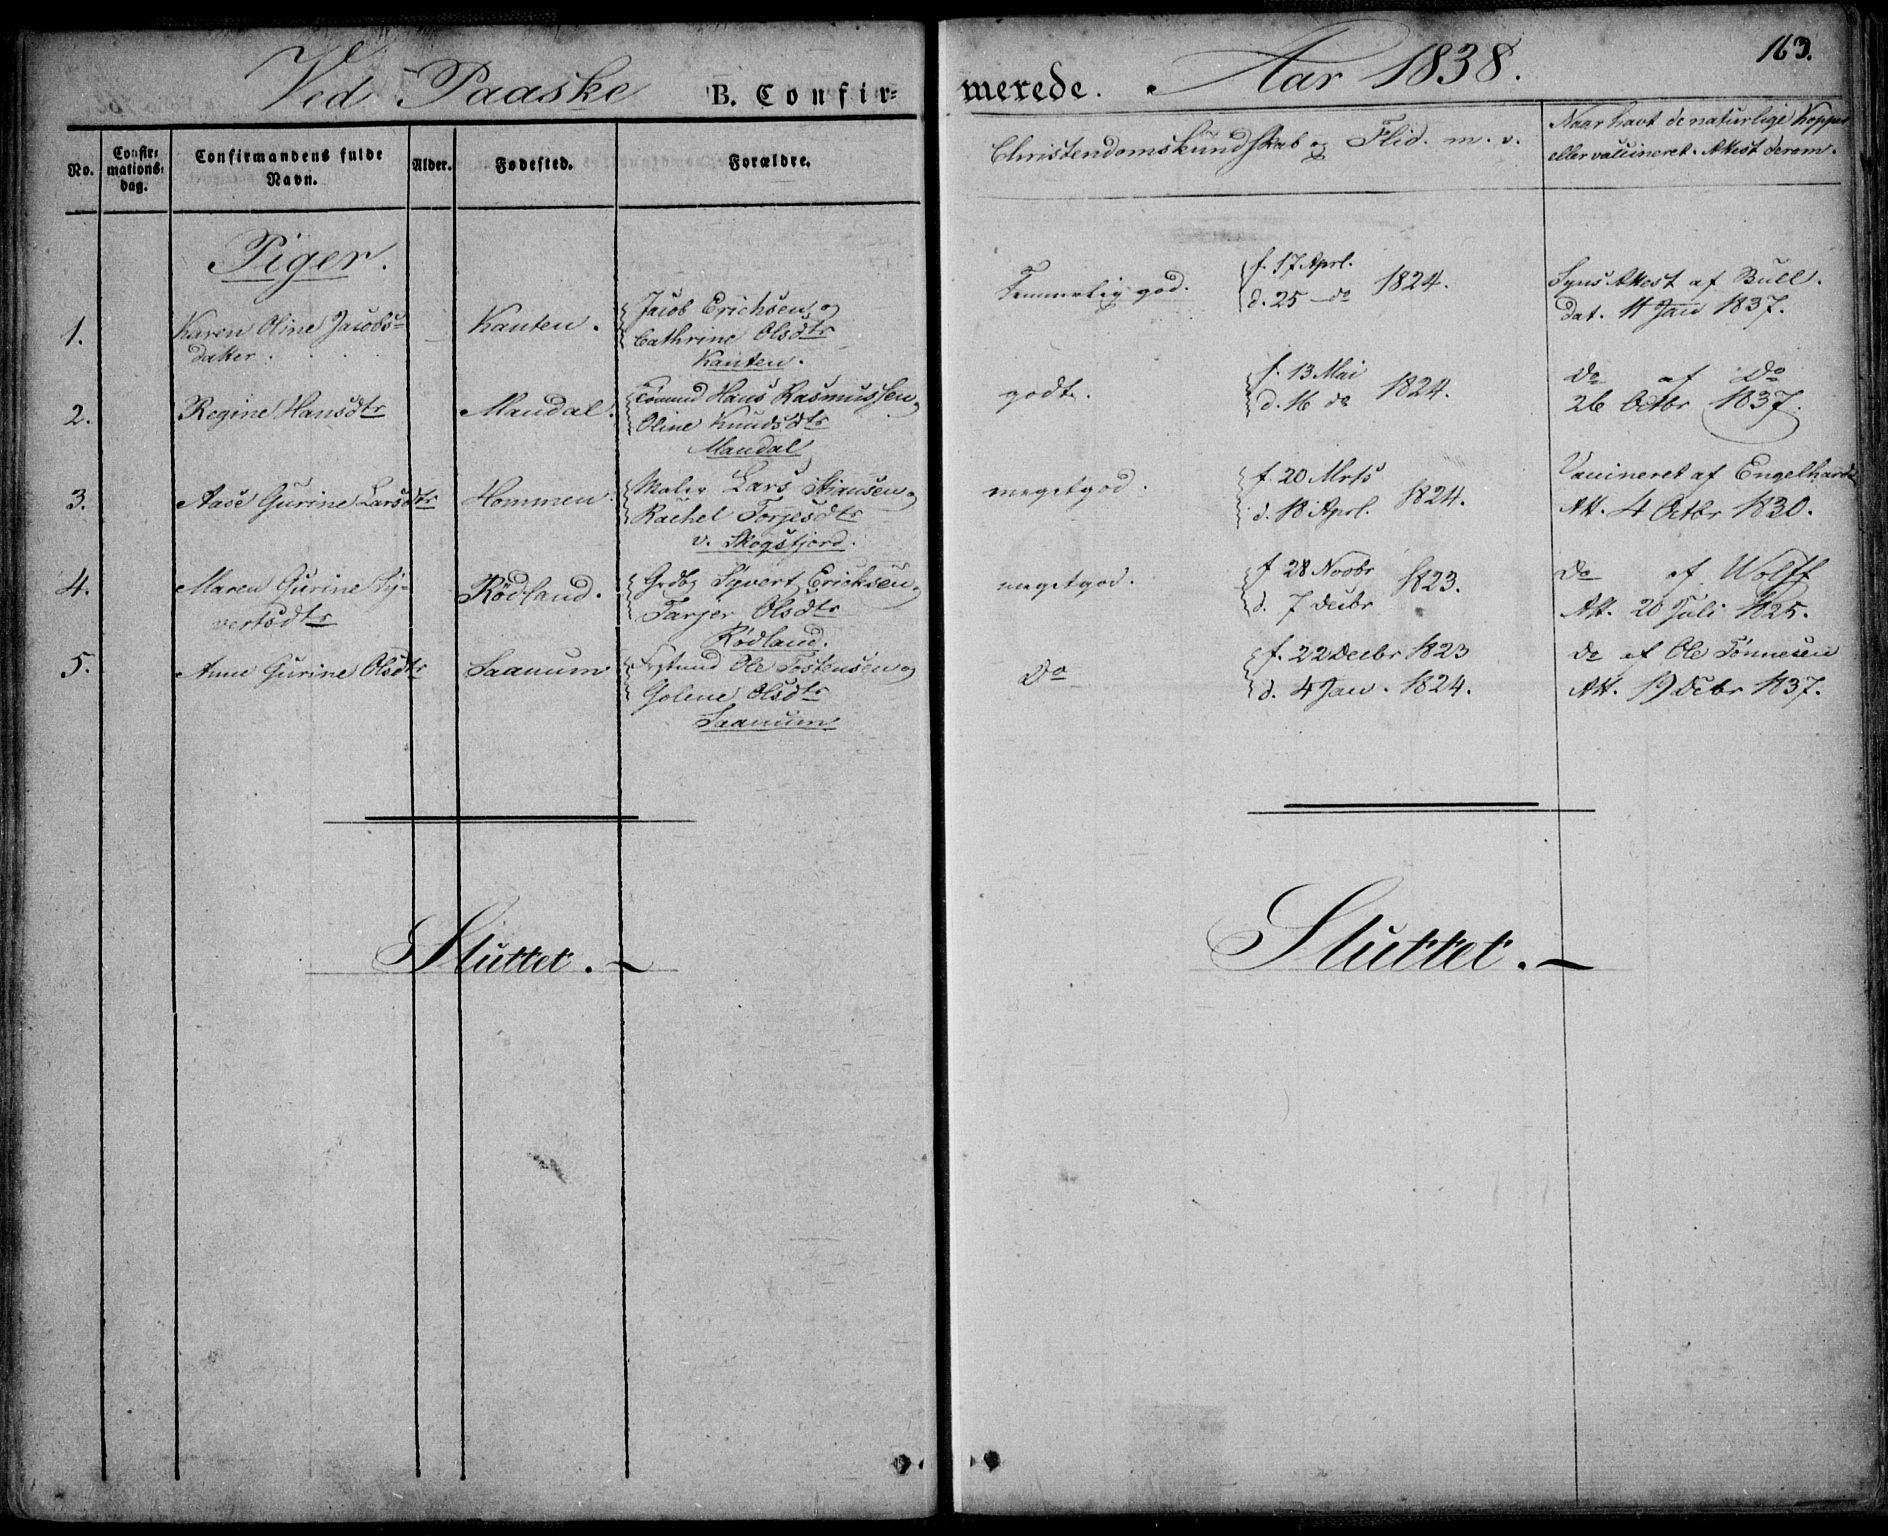 Ved Paaske B. Confir=
No.
Confir=
mations=
dag.
Confirmandens fulde
Navn.
Alder.
Fødested.
Forældre.
Piger.
1.
Karen Oline Jacobs=
datter.
Kanten.
Jacob Erichsen og
Cathrine Olsdtr
Kanten.
2.
Regine Hansdtr
Mandal.
Hans Rasmussen og
Oline Knudsdtr
Mandal
3.
Aase Gurine Larsdtr
Hommen.
Maler Lars Stiansen og
Rachel Torjesdtr
v. Skogsfjord.
4.
Maren Gurine Sy=
vertsdtr
Rödland.
Grdbg Syvert Erichsen og
Tarjer Olsdtr
Rödland.
5.
Anne Gurine Olsdtr
Saanum
Ole Tostensen og
Golene Olsdtr
Saanum
Sluttet.
merede. Aar 1838.
163.
Christendomskundskab og Flid. m. v.
Naar havt de naturlige Kopper
eller vaccineret. Attest derom.
Temmelig god.
f. 17 Aprl.
d. 25 do
1824.
Syns Attest af Bull.
dat. 11 Jan 1837.
godt.
f. 13 Mai
d. 16 do
1824.
do af do
26 Octbr 1837.
megetgod.
f. 20 Mrts
d. 18 Aprl.
1824.
Vaccineret af Engelhardt
Att. 4 Octbr 1830.
megetgod.
f 28 Novbr
d. 7 Decbr
1823.
do af Wolff
Att. 20 Juli 1825.
do
f. 22 Decbr 1823
d. 4 Jan. 1824.
do af Ole Tönnesen
Att. 19 Debr 1837.
Sluttet.